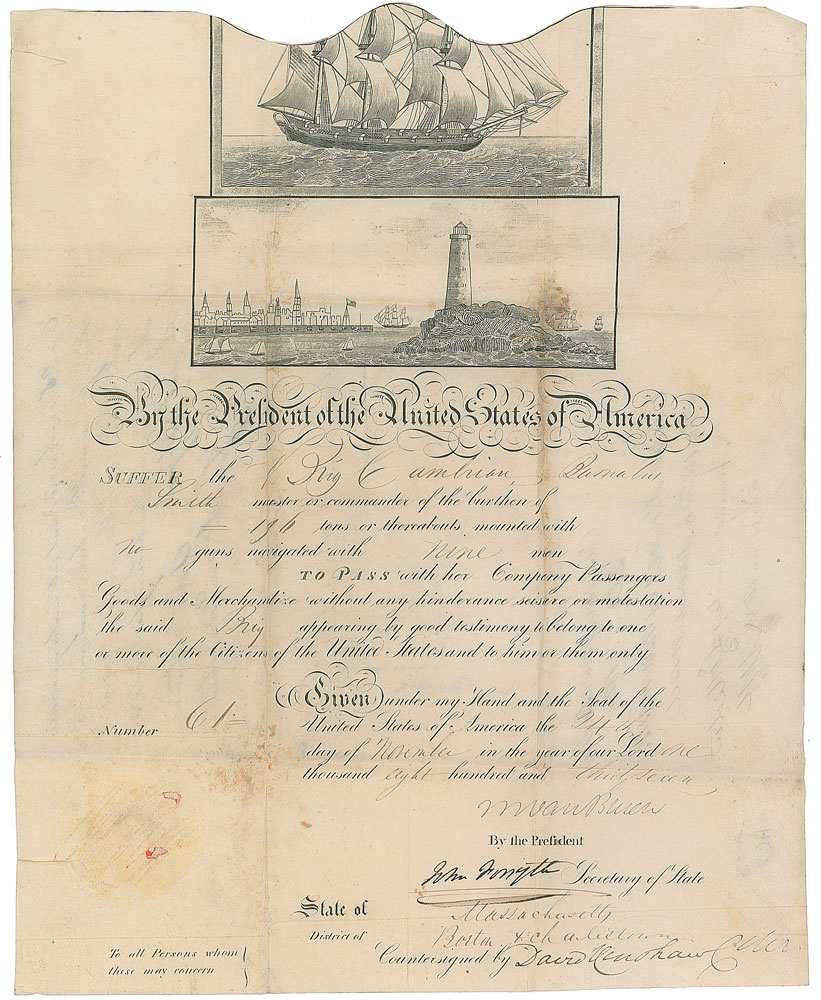 By the President of the United States of America
SUFFER the Brig Cambrian, Barnabas
Smith master or commander of the burthen of
= 196 tons or thereabouts mounted with
no guns navigated with nine men
TO PASS with her Company Passengers
Goods and Merchandize without any hinderance seisure or molestation
the said Brig appearing by good testimony to belong to one
or more of the Citizens of the United States and to him or them only
Given under my Hand and the Seal of the
United States of America the 24th
Number 61=
day of November in the year of our Lord one
thousand eight hundred and thirty seven
M Van Buren
By the President
John Forsyth Secretary of State
State of Massachusetts
District of Boston & Charlestown
Countersigned by David Henshaw Coller
To all Persons whom
these may concern